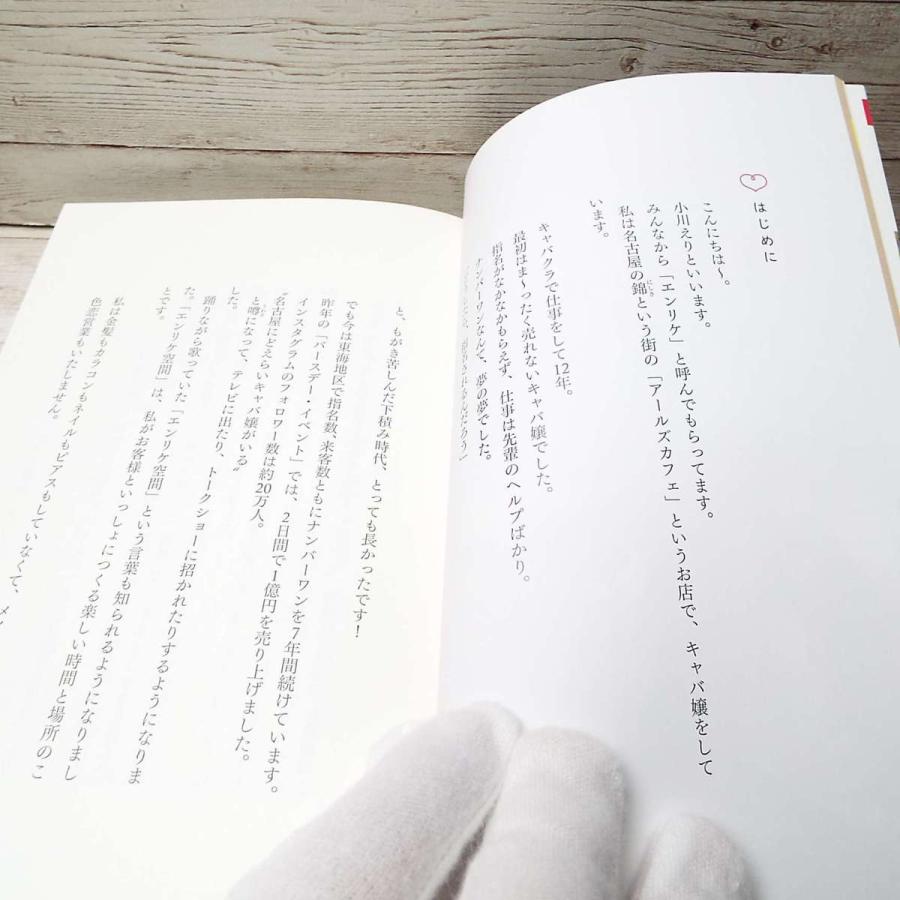 はじめに
こんにちは〜。
小川えりといいます。
みんなから「エンリケ」と呼んでもらってます。
私は名古屋の錦という街の「アールズカフェ」というお店で、キャバ嬢をして
にしき
います。
キャバクラで仕事をして12年。
最初はま〜ったく売れないキャバ嬢でした。
指名がなかなかもらえず、仕事は先輩のヘルプばかり。
ナンバーワンなんて、夢の夢でした。
と、もがき苦しんだ下積み時代、とっても長かったです！
でも今は東海地区で指名数、来客数ともにナンバーワンを7年間続けています。
昨年の「バースデー・イベント」では、2日間で1億円を売り上げました。
インスタグラムのフォロワー数は約20万人。
“名古屋にどえらいキャバ嬢がいる”
と噂になって、テレビに出たり、トークショーに招かれたりするようになりま
した。
踊りながら歌っていた「エンリケ空間」という言葉も知られるようになりまし
た。「エンリケ空間」は、私がお客様といっしょにつくる楽しい時間と場所のこ
とです。
私は金髪もカラコンもネイルもピアスもしていなくて、
色恋営業もいたしません。